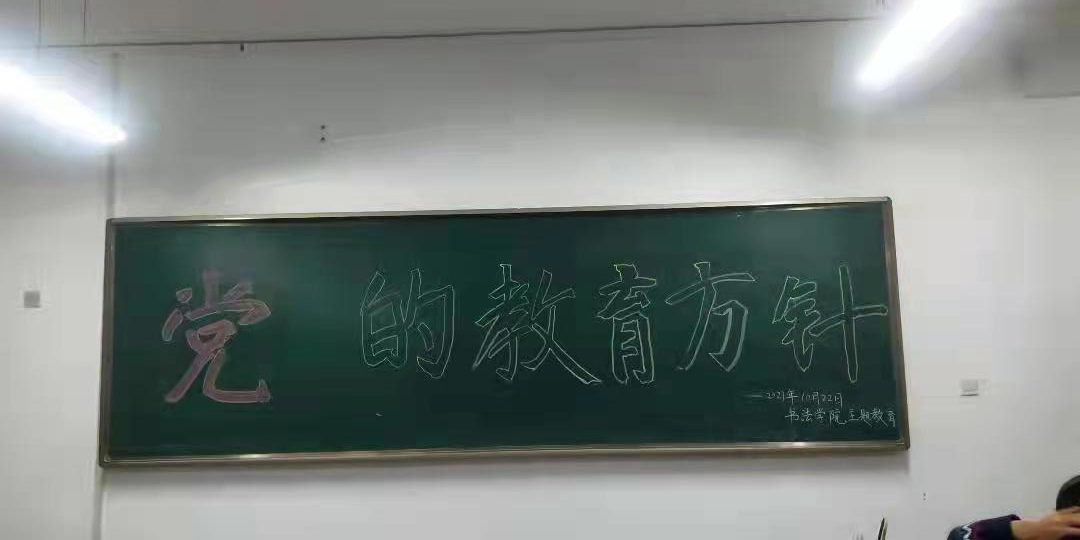 党的教育方针
——2021年10月22日
书法学院主题教育